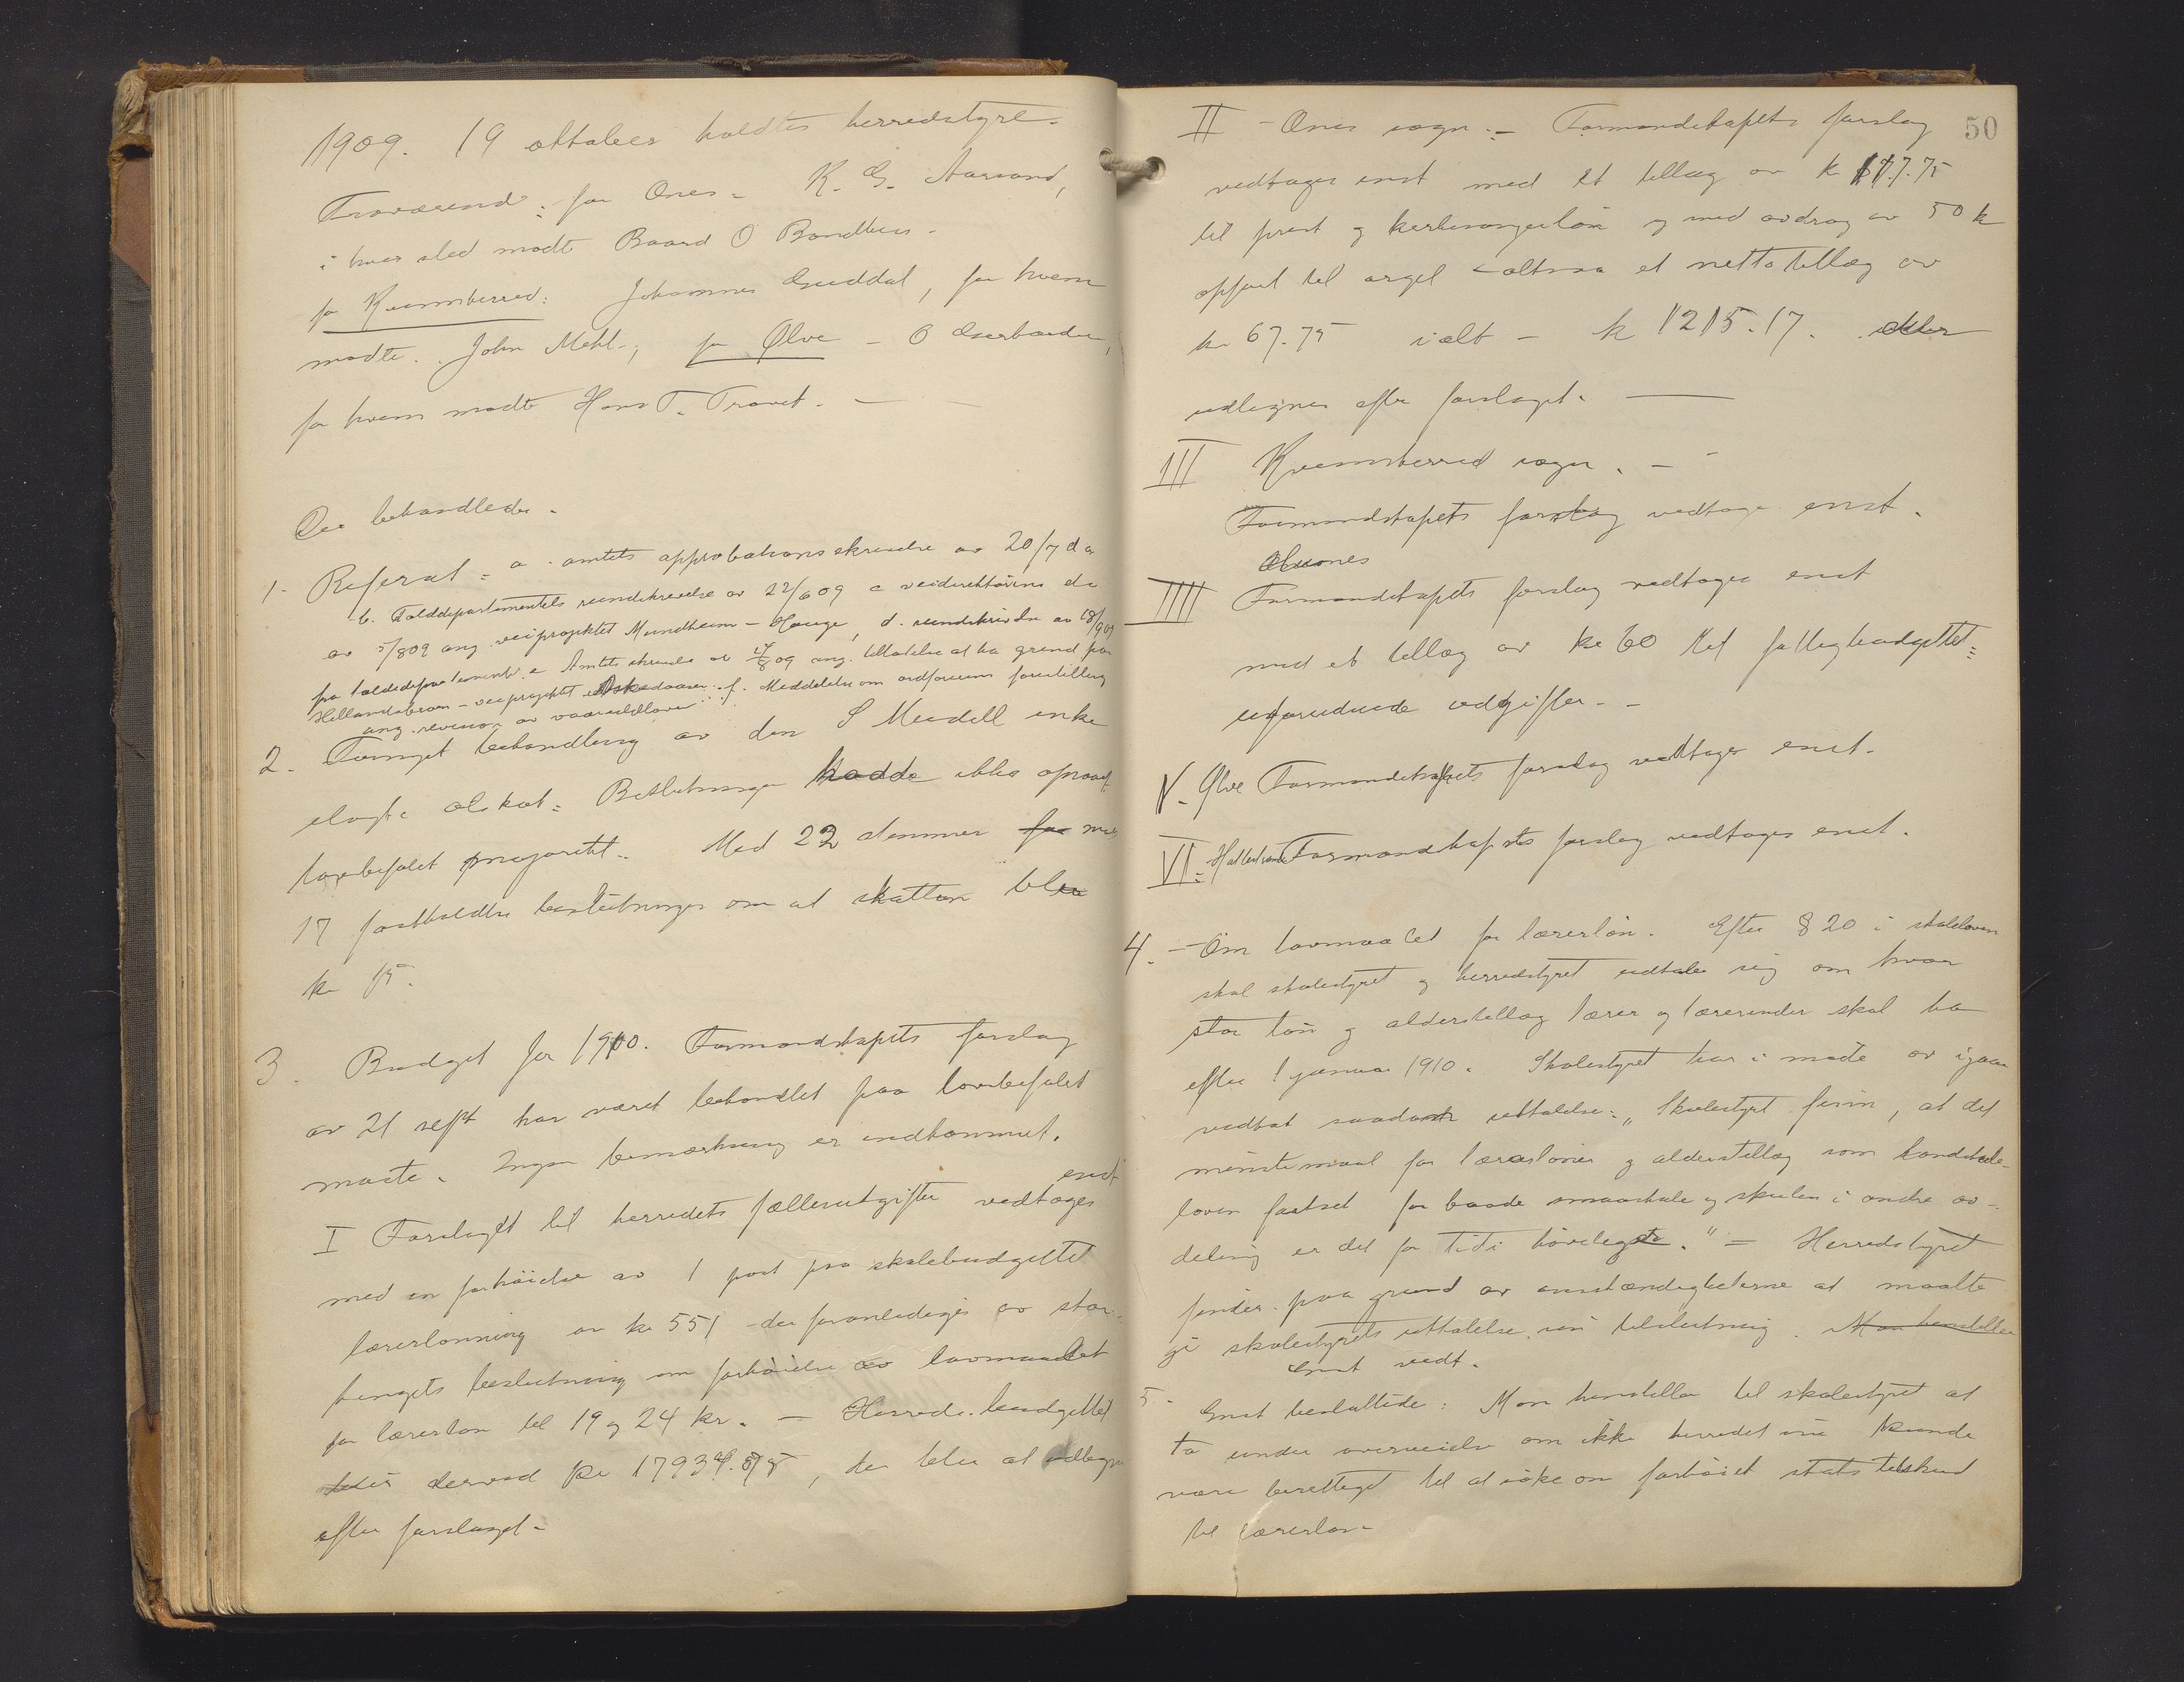 1909. 19 oktober holdtes herredstyre.
Fraværend: for Ænes - K. G. Aarsand,
i hves sted mødte Baard O Bondhus -
for Kvinnherred: Johannes Guddal, for hvem
mødte. John Mehl.; for Ølve - O
for hvem mødte Hans T. Travet. -
Der behandledes.
1. Referat = a. amtets approbationsskrivelse av 20/7 d a
b. Tolddepartementets rundskrivelse av 22/6 09 c veidirektørens do
av 5/8 09 ang. veiprojektet Mundheim - Hauge, d. rundskrivelse av 18/9 09
fra tolddepartement. e Amtets skrivelse av 17/8 09 ang. tilladelse at ta grund for
- veiprojektet f. Meddelelse om ordførerens forestilling
ang. revision av
2. Fornyet behandling av den S Meidell enke
ilagte alskat = Beslutningen hadde ikke opnaad
lovbefalet majoritet. Med 22 stemmer for mot
17 fastholdtes beslutningen om at skatten blev
kr 15.
3. Budget for 1910. Formandskapets forslag
av 21 sept har været behandlet paa lovbefalet
maate. Ingen bemærkning er indkommet.
enst
I Forslaget til herredets fællesutgifter vedtages
med en forhøielse av 1 post paa skolebudgettet
lærerlønning av kr 551 - der foranlediges av stor-
tingets beslutning om forhøielse av lovmaalet
for lærerløn til 19 og 24 kr. - Herreds budgettet
blir derved kr , der blir at utlegne
efter forslaget -
50
II - Ænes sogn. - Formandskapets forslag
vedtages enst med et tillæg av kr 117.75
til prest og kirkesangerløn og med avdrag av 50 kr
opført til orgel - altsaa et netto tillæg av
kr 67.75 ialt - kr 1215.17. der
utlignes efter forslaget. -
III Kvinnherred sogn. -
Formandskapets forslag vedtages enst.
Husnes
IIII Formandskapets forslag vedtages enst
med et tillæg av kr 60 til fattigbudgettet =
uforudseede udgifter. -
V. Ølve Formandskapets forslag vedtages enst.
VI. Formandskapets forslag vedtages enst.
4. - Om lovmaalet for lærerløn. Efter § 20 i skoleloven
skal skolestyret og herredstyret udtale sig om hvor
stor løn og alderstillæg lærer og lærerinder skal ha
efter 1 januar 1910. Skolestyret har i møte av igaar
vedtat saadan uttalelse: "Skolestyret finn, at det
minstemaal for lærerløner og alderstillæg som landskule-
loven fastset for baade smaaskule og skulen i andre av-
deling er det for tidi høvelege." = Herredstyret
finder paa grund av omstændigheterne at maatte
gi skolestyrets uttalelse sin tilslutning. Man henstiller
Enst vedt.
5. Enst besluttede: Man henstiller til skolestyret at
ta under overveielse om ikke herredet nu kunde
være berettiget til at søke om forhøiet statstilskud
til lærerløn -